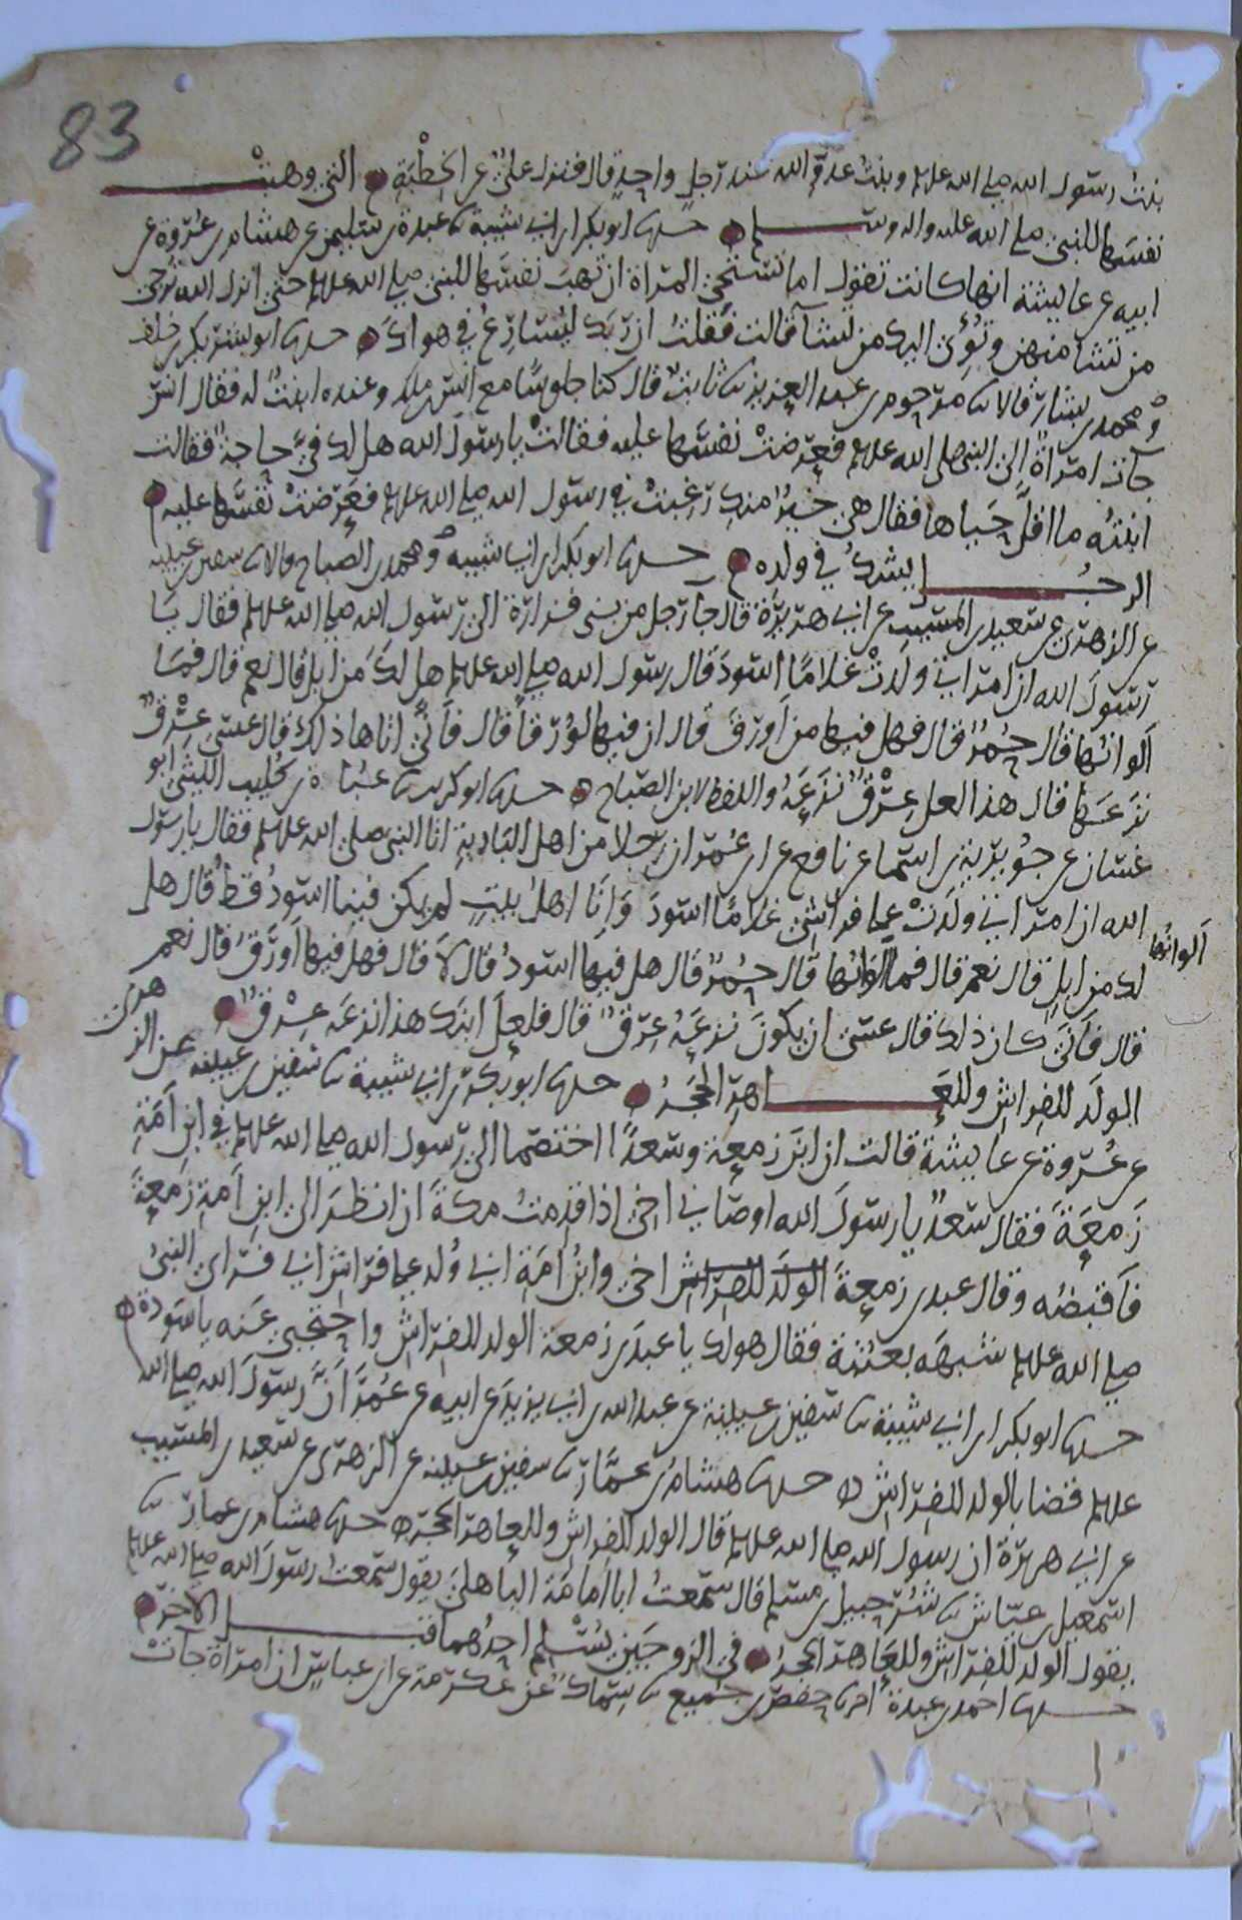 83
بنت رسول الله صلى الله علىه وبنت عدو الله عند رجل واحد قال فنزل عليٌّ عن الخِطْبَةِ التي وهبتْ
نفسَها للنبي صلى الله عليه واله وسلم حدثنا ابو بكر ابن ابي شيبة ثنا عبدة بن سليمن عن هشام بن عُرْوة عن
ابيه عن عايشة انها كانت تقول اما تستحي المراة ان تهب نفسَها للنبي صلى الله علىه حتى انزل الله تُرجي
من تشا منهن وتُؤْي اليك من تشآ قالت فقلتُ ان ربك ليُسَارِعُ في هواكَ حدثنا ابو بشر بكر بن خلف
ومحمد بن بشار قالا ثنا مرحوم بن عبد العزيز ثنا ثابتٌ قال كنا جلوسًا مع انس بن ملك وعنده ابنتٌ له فقال انس
جآت امراةٌ الى النبي صلى الله علىه فعرضتْ نفسَها عليه فقالتْ يا رسولَ الله هل لك فيَّ حاجةٌ فقالت
ابنتُه ما اقلَّ حَياها فقال هي خيرٌ منكِ رَغِبتْ في رسول الله صلى الله علىه فعَرضتْ نفسَها عليه
الرجُل يشكُ في ولده حدثنا ابو بكر ابن ابي شيبه ومحمد بن الصباح قالا ثنا سفين بن عيينه
عن الزهري عن سعيد بن المسيب عن ابي هريرة قال جا رجل من بني فزارة الى رسول الله صلى الله علىه فقال يا
رسولَ الله ان امراتي ولَدتْ غلامًا اسودَ قال رسول الله صلى الله علىه هل لكَ من ابل قال نعم قال فما
اَلوانُها قال حُمرٌ قال فهل فيها من اَورَقَ قال ان فيها لوُرْقًا قال فاَنَّى اتاها ذلك قال عسى عِرْقٌ
نَزَعَها قال هذا لعل عِرْقٌ نَزَعَهُ واللفظ لابن الصباح حدثنا ابو كريب ثنا عَبَاة بن كُليب الليثي ابو
غسان عن جُويْرية بن اسما عن نافع عن ابن عُمر ان رجلا من اهل البادية اتا النبي صلى الله علىه فقال يا رسول
الله ان امراتي ولَدتْ على فراشي غلامًا اسودَ وَاِنَّا اهلُ بيتٍ لم يكن فينا اسودُ قطُ قال هل
لك من ابلٍ قال نعم قال فما الوانها قال حُمرٌ قال هل فيها اسودُ قال لاَ قال فهل فيها اَورَقُ قال نعم
الوانُها
قال فاَنَّى كان ذلك قال عسى ان يكونَ نزعَهُ عِرقٌ قال فلعل ابنَك هذا نزعَه عِرْقٌ
الولَد للفراشِ وللعَاهِرِ الحَجَرُ حدثنا ابو بكر بن ابي شيبة ثنا سفين بن عيينه عن الزهري
عن عُروة عن عايشة قالت ان ابنَ زمعة وسعدًا اختصما الى رسول الله صلى الله علىه في ابن اَمَةِ
زَمعَةَ فقال سعدٌ يا رسولَ الله اوصاني اخي اذا قدِمتُ مكةَ ان انظرَ الى ابنِ اَمةِ زمعةَ
فاَقبضُه وقال عبد بن زمعةَ الولَد للفراش اخي وابنُ امَةِ ابي وُلد على فراش ابي فراى النبيُ
صلى الله علىه شبهَه بعُتبة فقال هو لك يا عبدَ بن زمعة الولد للفراشِ واحتجبي عنه يا سَودةُ
حدثنا ابو بكر ابن ابي شيبة ثنا سفين بن عيينة عن عبد الله بن ابي يزيد عن ابيه عن عُمرَ اَنَّ رسولَ الله صلى الله
علىه قضا بالولد للفراش حدثنا هشام بن عمَّار ثنا سفين بن عيينه عن الزهري عن سعيد بن المسيب
عن ابي هريرة ان رسول الله صلى الله علىه قال الولد للفراش وللعاهر الحجر حدثنا هشام بن عمار ثنا
اسمعيل بن عياش ثنا شُرحبيل بن مسلم قال سمعتُ ابا اُمامَة الباهليَ يقول سمعتُ رسولَ الله صلى الله علىه
يقول الولد للفراش وللعَاهر الحجر في الزوجَينِ يُسْلِم احدُهما قبل الآخر
حدثنا احمد بن عبدة ثنا حفص بن جُميع ثنا سِماكٌ عن عكرمة عن ابن عباسٍ ان امراة جآت